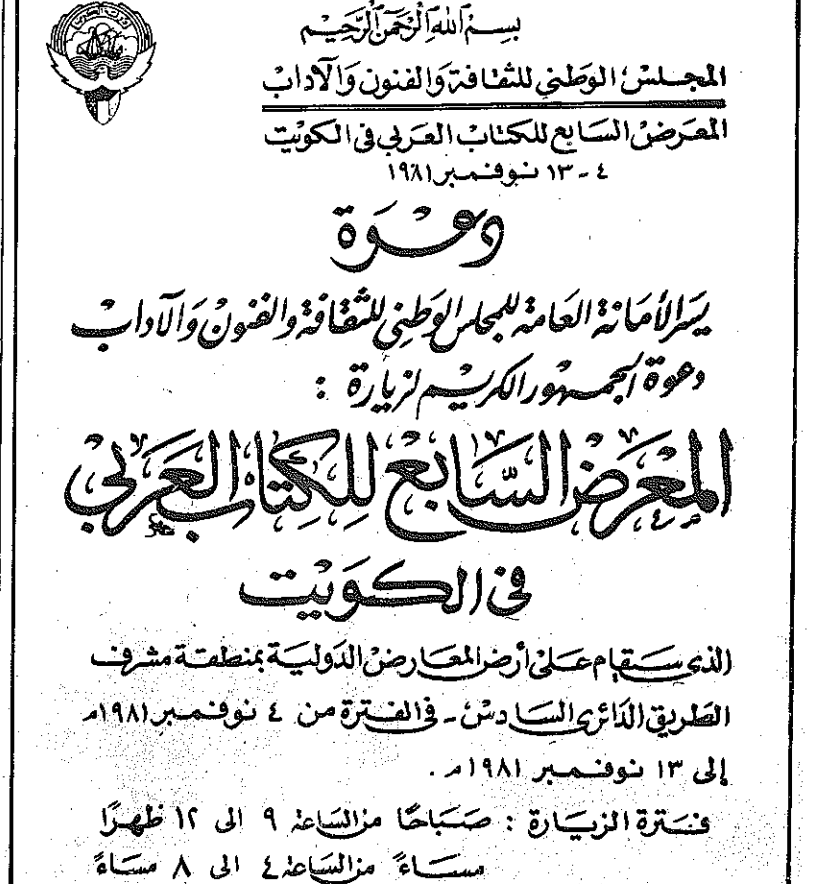 بسم الله الرحمن الرحيم
المجلس الوطني للثقافة والفنون والآداب
المعرض السابع للكتاب العربي في الكويت
٤ - ١٣ نوفمبر ١٩٨١
دعوة
يسر الأمانة العامة للمجلس الوطني للثقافة والفنون والآداب
دعوة الجمهور الكريم لزيارة :
المعرض السابع للكتاب العربي
في الكويت
الذي سيقام على أرض المعارض الدولية بمنطقة مشرف
الطريق الدائري السادس - في الفترة من ٤ نوفمبر ١٩٨١م
إلى ١٣ نوفمبر ١٩٨١م .
فترة الزيارة : صباحًا من الساعة ٩ الى ١٢ ظهرًا
مساءً من الساعة ٤ الى ٨ مساءً